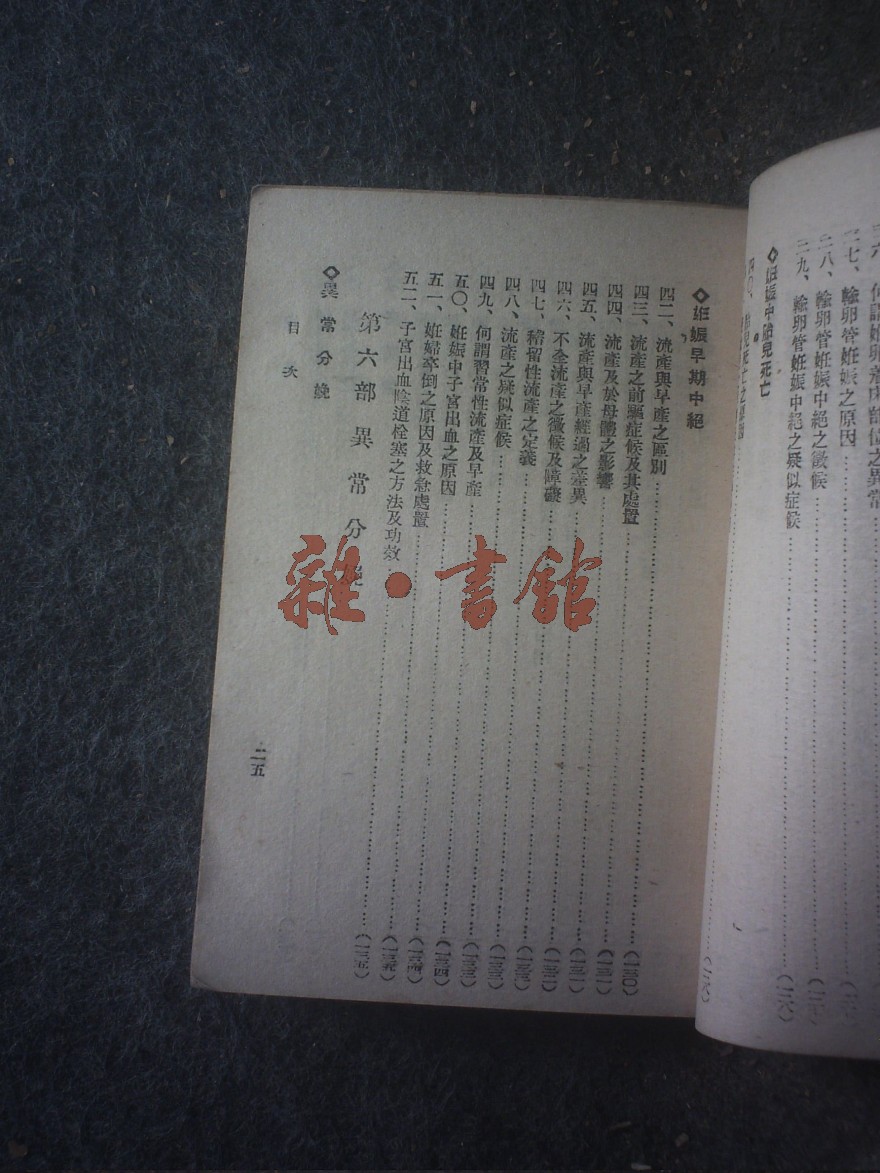 何謂妊卵着床部位之異常
三七、輸卵管妊娠之原因
三八、輸卵管妊娠中絕之徵候
三九、輸卵管妊娠中絕之疑似症候
◇妊娠中胎兒死亡
四〇、胎兒死亡之原因
◇妊娠早期中絕
四二、流產與早產之區別……(一三〇)
四三、流產之前驅症候及其處置……(一三一)
四四、流產及於母體之影響……(一三一)
四五、流產與早產經過之差異……
四六、不全流產之徵候及障礙……
四七、稽留性流產之定義……
四八、流產之疑似症候……
四九、何謂習常性流產及早產……
五〇、妊娠中子宮出血之原因……
五一、妊婦卒倒之原因及救急處置……
五二、子宮出血陰道栓塞之方法及功效……
第六部 異常分娩
◇異常分娩
目次
二五
雜·書館